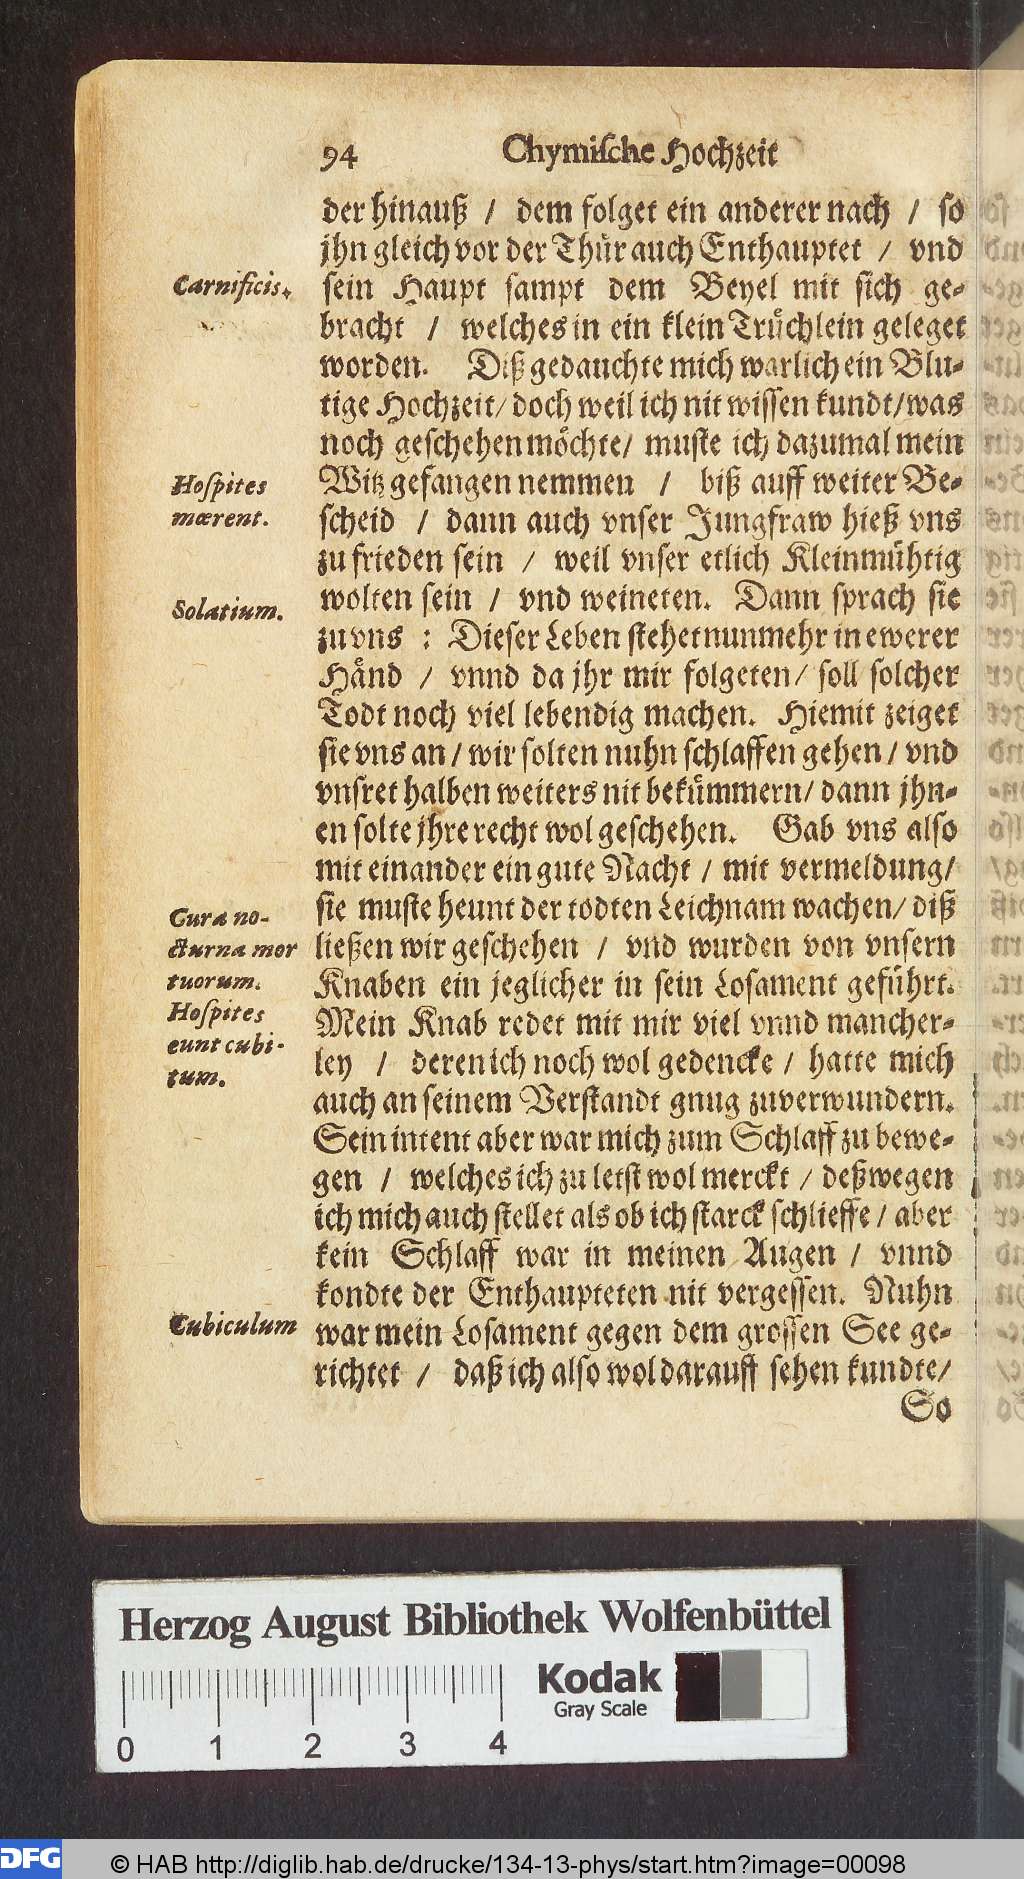 94 Chymische Hochzeit
der hinauß / dem folget ein anderer nach / so
jhn gleich vor der Thür auch Enthauptet / vnd
Carnificis.
sein Haupt sampt dem Beyel mit sich ge-
bracht / welches in ein klein Trüchlein geleget
worden. Diß gedauchte mich warlich ein Blu-
tige Hochzeit/ doch weil ich nit wissen kundt/was
noch geschehen möchte/ muste ich dazumal mein
Hospites
mœrent.
Witz gefangen nemmen / biß auff weiter Be-
scheid / dann auch vnser Jungfraw hieß vns
zu frieden sein / weil vnser etlich Kleinmühtig
Solatium.
wolten sein / vnd weineten. Dann sprach sie
zu vns : Dieser Leben stehet nunmehr in ewerer
Händ / vnnd da jhr mir folgeten/ soll solcher
Todt noch viel lebendig machen. Hiemit zeiget
sie vns an / wir solten nuhn schlaffen gehen / vnd
vnsret halben weiters nit bekümmern/ dann jhn-
en solte jhre recht wol geschehen. Gab vns also
mit einander ein gute Nacht / mit vermeldung/
Cura no-
cturna mor
tuorum.
sie muste heunt der todten Leichnam wachen/ diß
ließen wir geschehen / vnd wurden von vnsern
Knaben ein jeglicher in sein Losament geführt.
Hospites
eunt cubi-
tum.
Mein Knab redet mit mir viel vnnd mancher-
ley / deren ich noch wol gedencke / hatte mich
auch an seinem Verstandt gnug zuverwundern.
Sein intent aber war mich zum Schlaff zu bewe-
gen / welches ich zu letst wol merckt / deßwegen
ich mich auch stellet als ob ich starck schlieffe / aber
kein Schlaff war in meinen Augen / vnnd
kondte der Enthaupteten nit vergessen. Nuhn
Cubiculum
war mein Losament gegen dem grossen See ge-
richtet / daß ich also wol darauff sehen kundte/
So
Herzog August Bibliothek Wolfenbüttel
Kodak
Gray Scale
0 1 2 3 4
DFG © HAB http://diglib.hab.de/drucke/134-13-phys/start.htm?image=00098